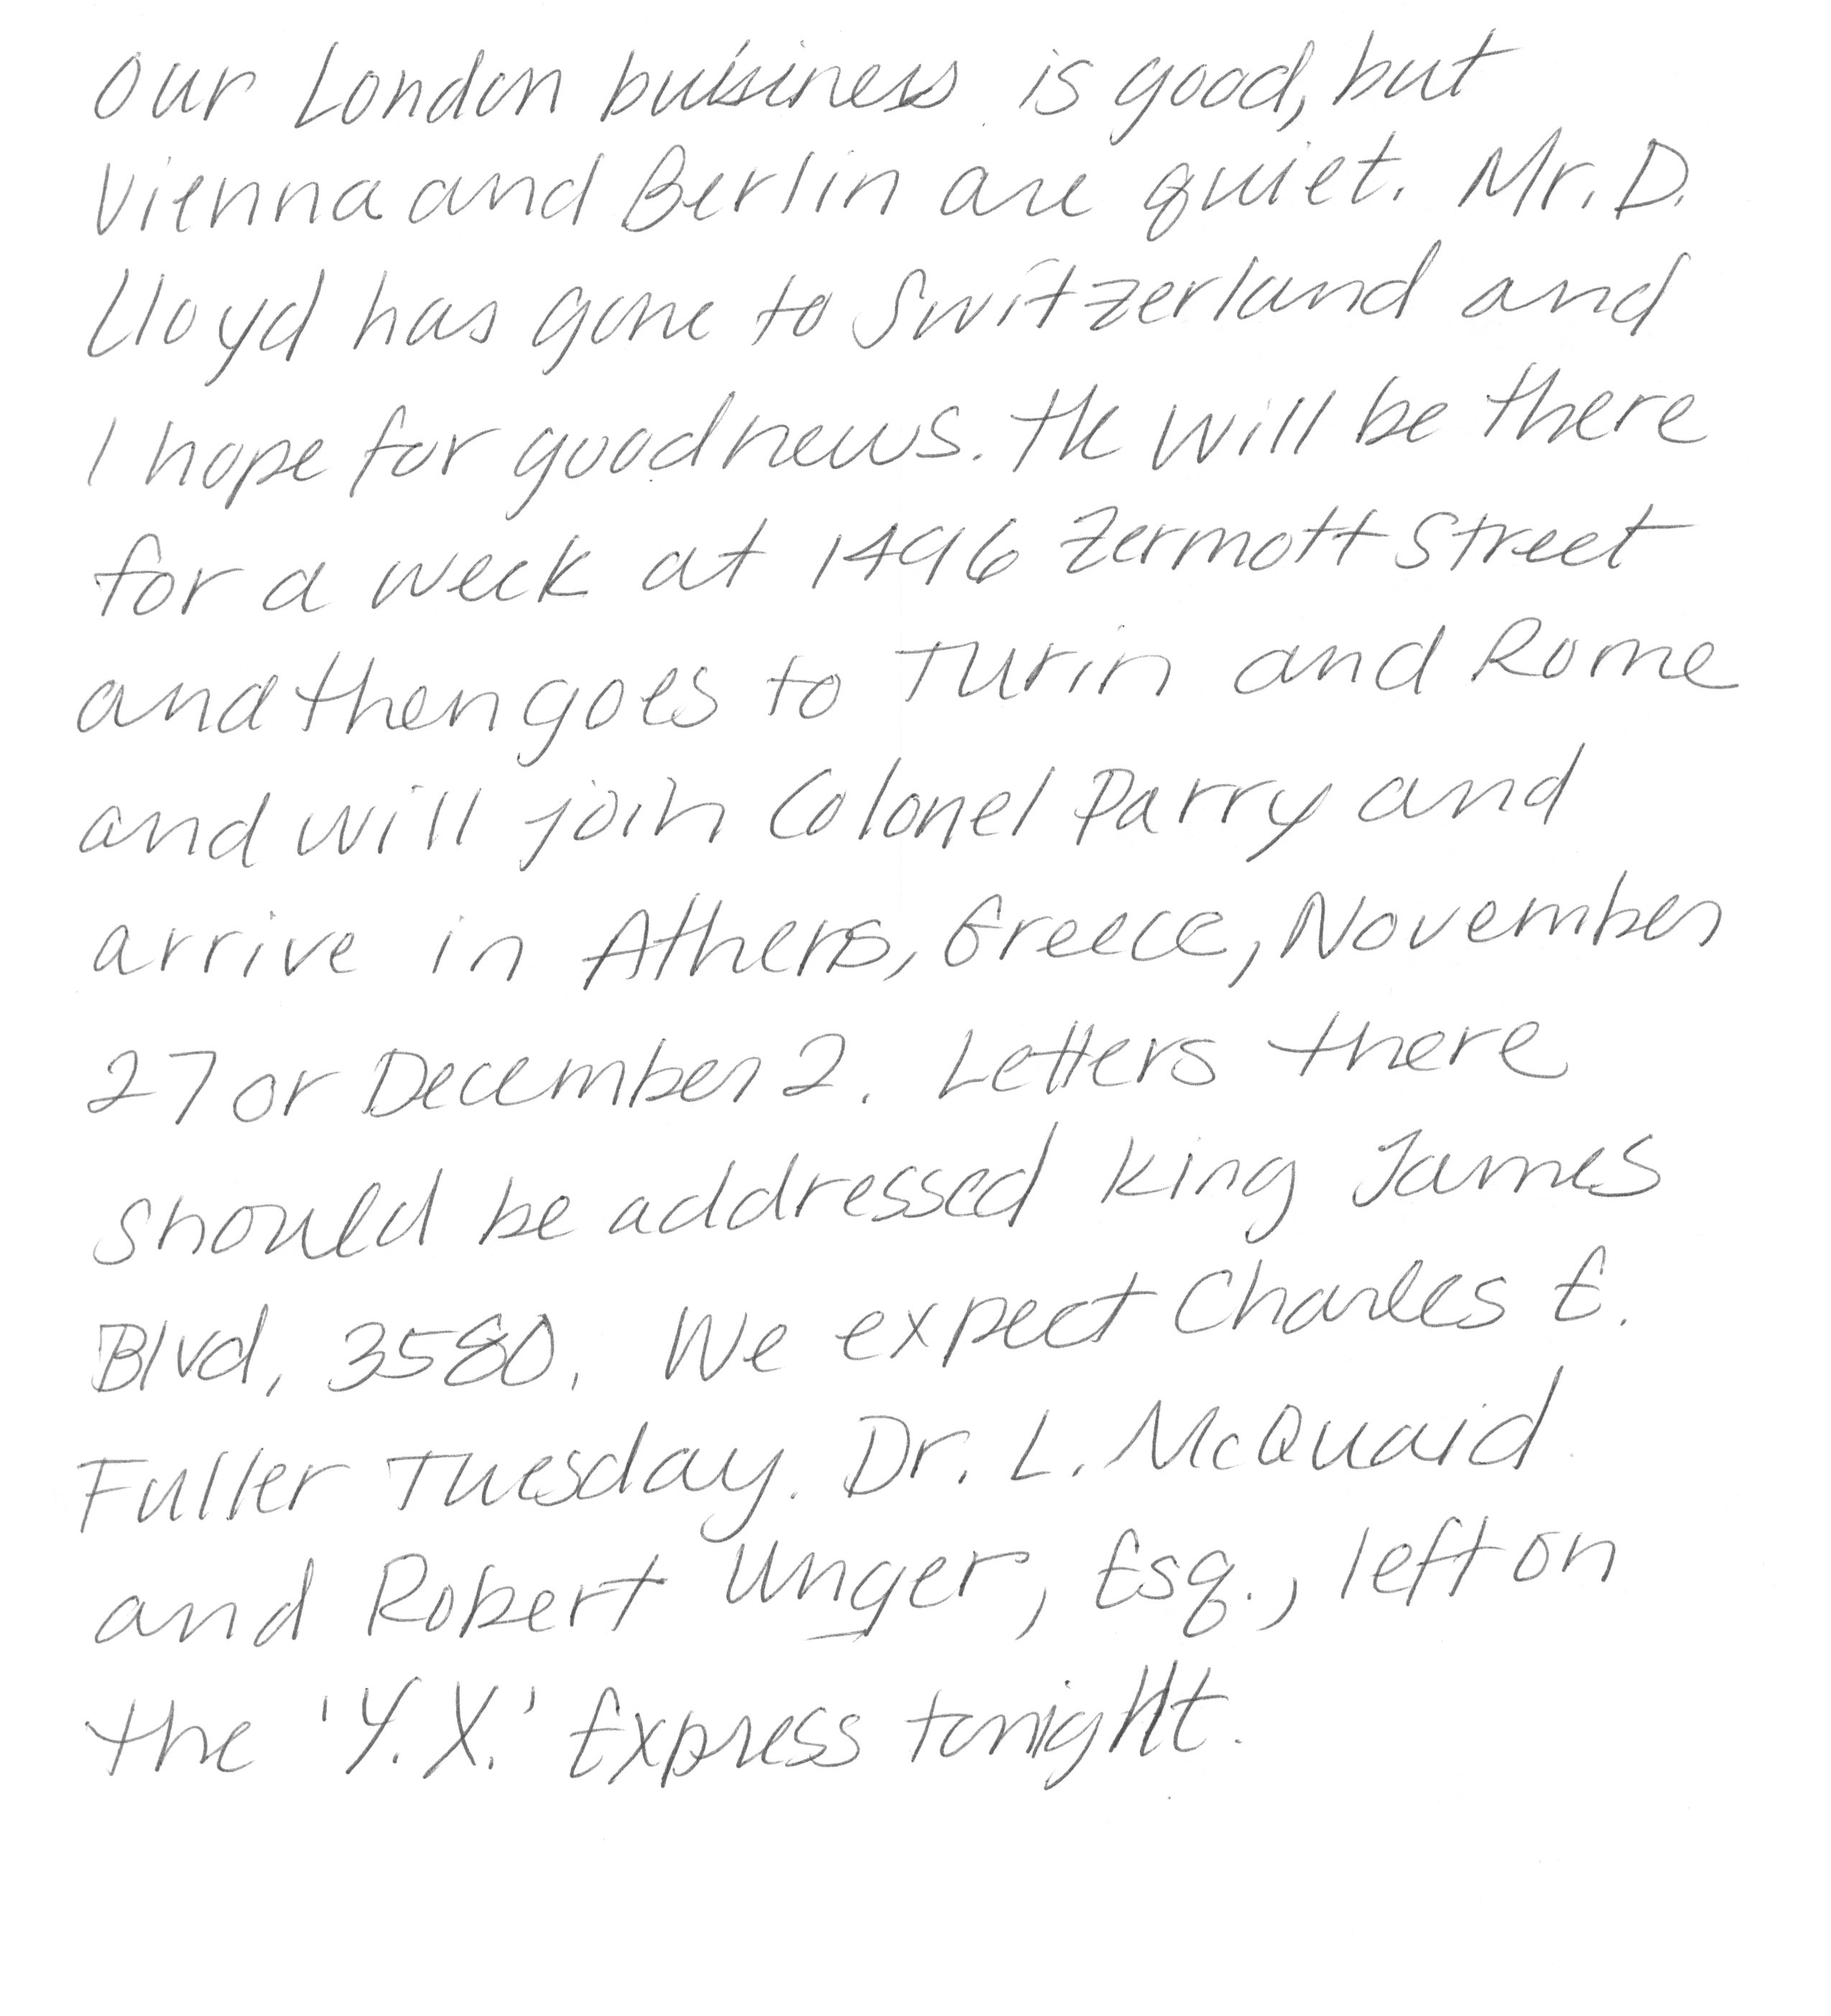 Our London business is good, but
Vienna and Berlin are quiet. Mr. D.
Lloyd has gone to Switzerland and
I hope for good news. He will be there
for a week at 1496 Zermott Street
and then goes to Turin and Rome
and will join Colonel Parry and
arrive in Athens, Greece, November
27 or December 2. Letters there
should be addressed King James
Blvd, 3580. We expect Charles E.
Fuller Tuesday. Dr. L. McQuaid
and Robert Unger, Esq., left on
the 'Y.X.' Express tonight.